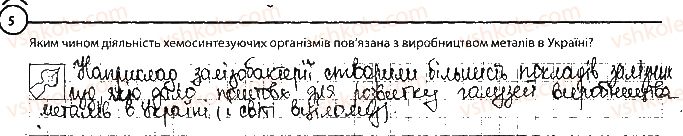 5
Яким чином діяльність хемосинтезуючих організмів пов'язана з виробництвом металів в Україні?
Наприклад залізобактерії створили більшість покладів залізних
що дало поштовх для розвитку галузей виробництва
металів в Україні (і світі вцілому).